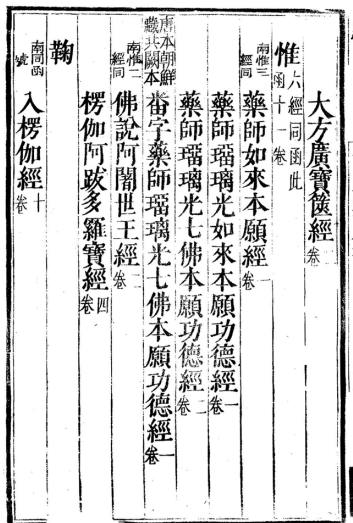 大方廣寶篋經卷二
惟六經同函此函十一卷
南惟三經同藥師如來本願經卷一
藥師瑠璃光如來本願功德經卷一
藥師瑠璃光七佛本願功德經卷二
唐本朝鮮藏共闕本番字藥師瑠璃光七佛本願功德經卷一
南惟二經同佛說阿闍世王經卷二
楞伽阿跋多羅寶經卷四
鞠
南同函號入楞伽經卷十